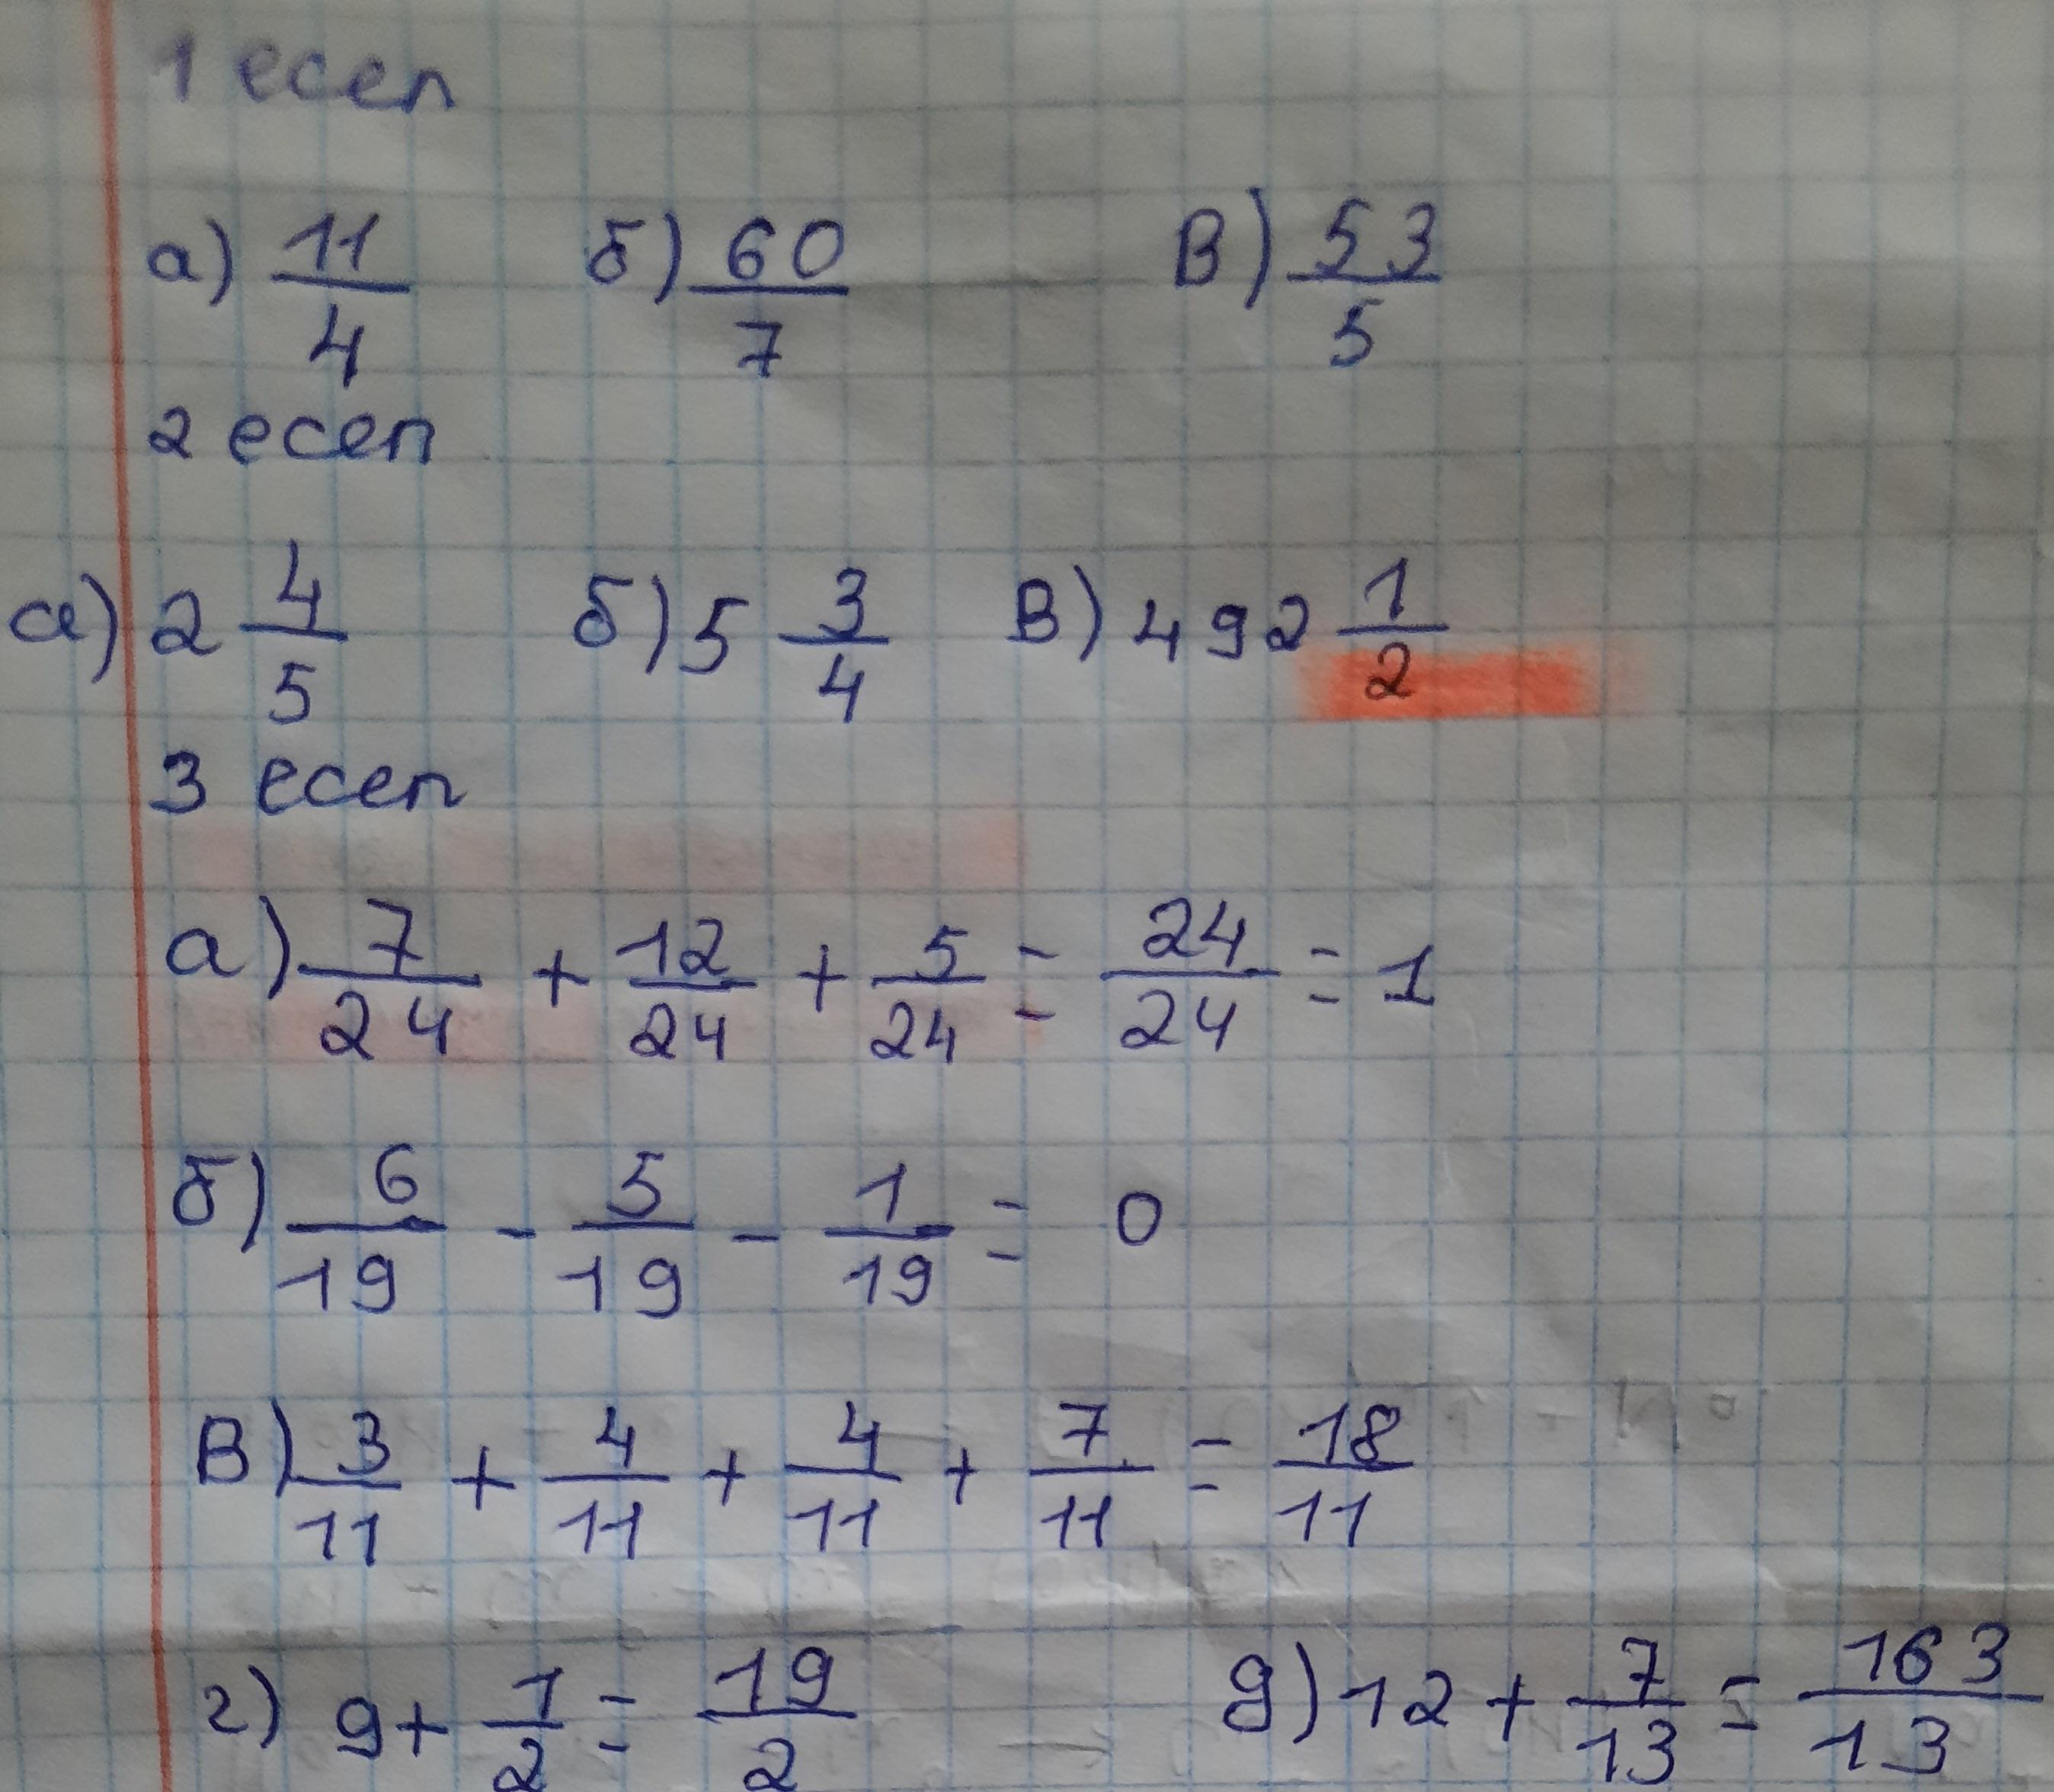 1 есеп
а) 11/4 б) 60/7 в) 53/5
2 есеп
а) 2 4/5 б) 5 3/4 в) 492 1/2
3 есеп
а) 7/24 + 12/24 + 5/24 = 24/24 = 1
б) 6/19 - 5/19 - 1/19 = 0
в) 3/11 + 4/11 + 4/11 + 7/11 = 18/11
г) 9 + 1/2 = 19/2 д) 12 + 7/13 = 163/13